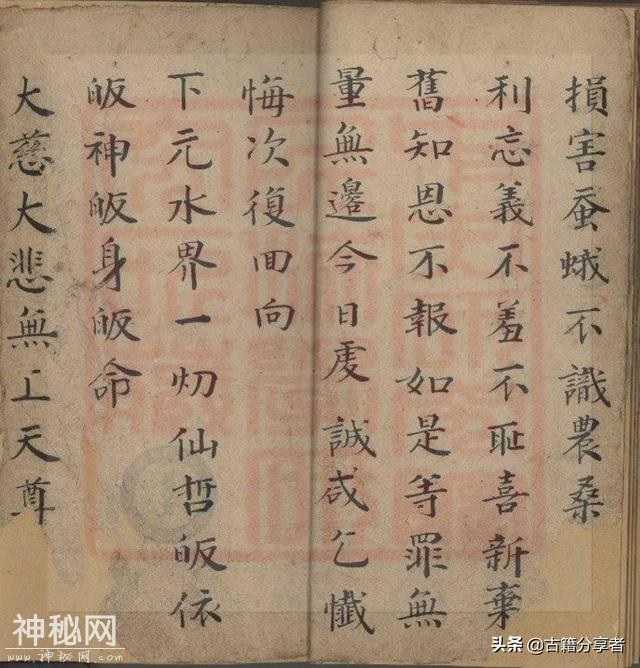 損害蚕蛾不識農桑
利忘義不羞不耻喜新棄
舊知恩不報如是等罪無
量無邊今日虔誠咸乞懺
悔次復回向
下元水界一切仙哲皈依
皈神皈身皈命
大慈大悲無上天尊
神秘网
www.神秘网.com
头条 @古籍分享者